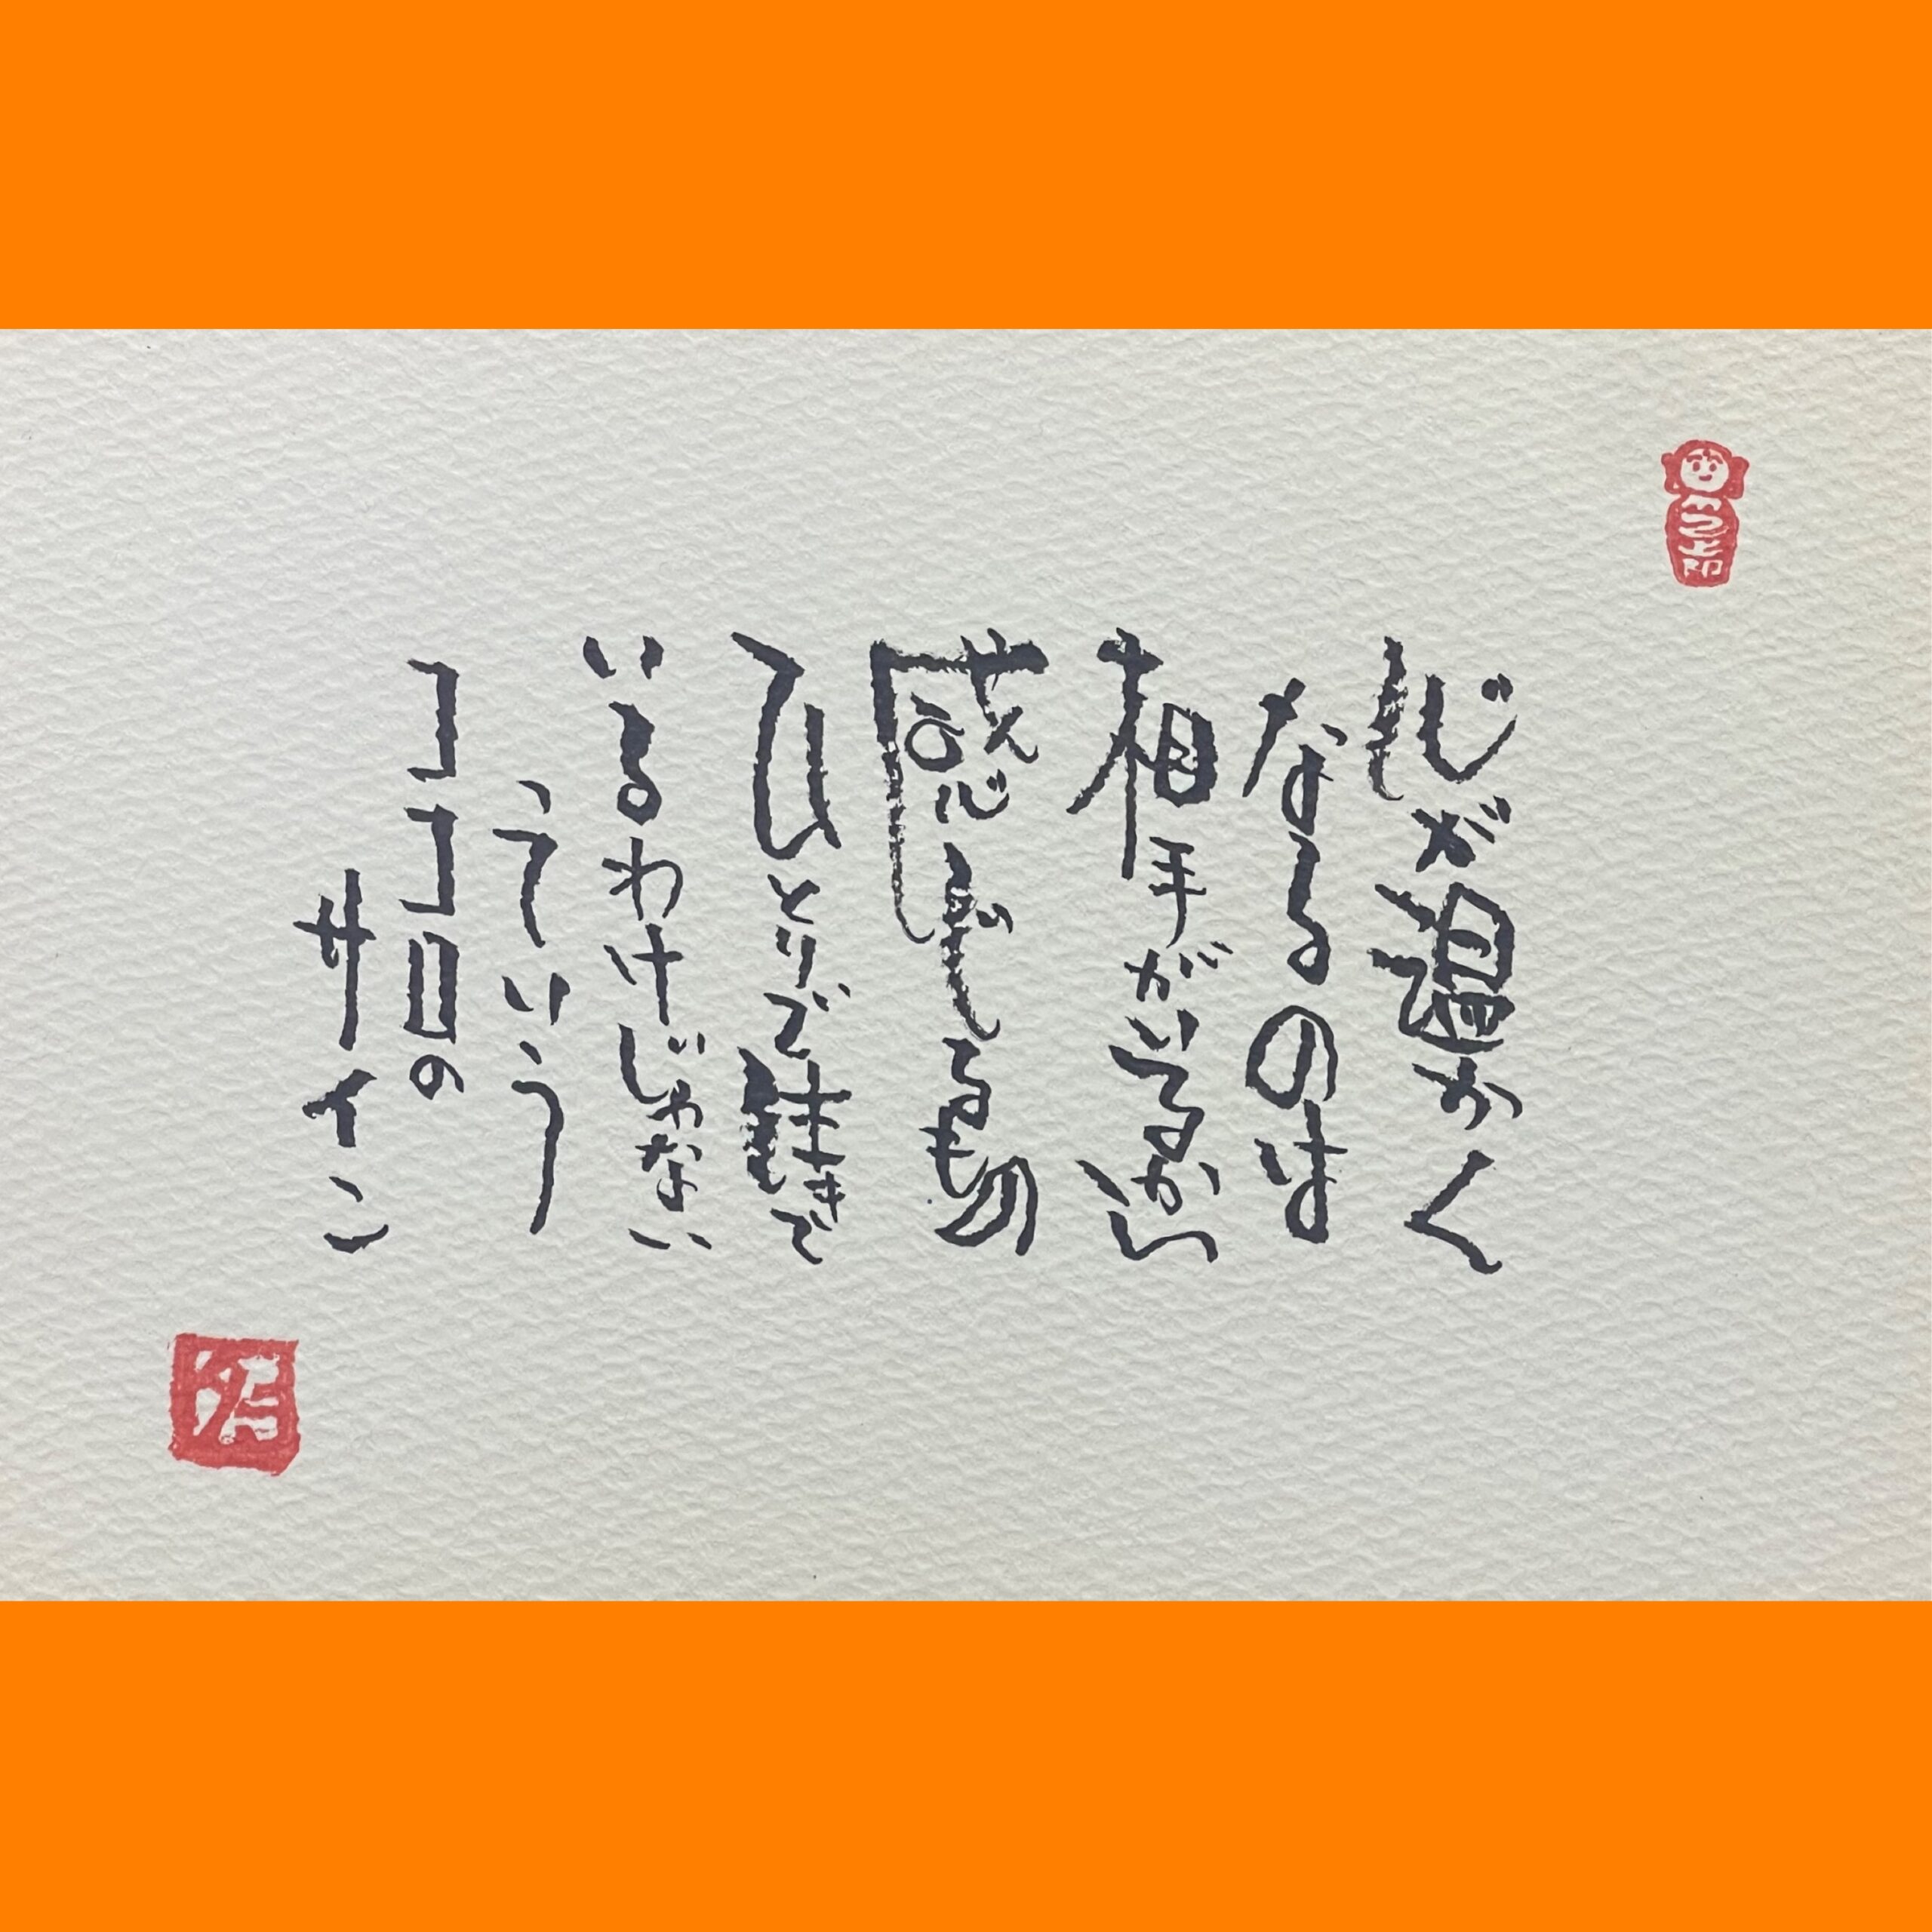 心が温かく
なるのは
相手がいるから
感じるもの
ひとりで生きで
いるわけじゃない
っていう
ココロの
サイン